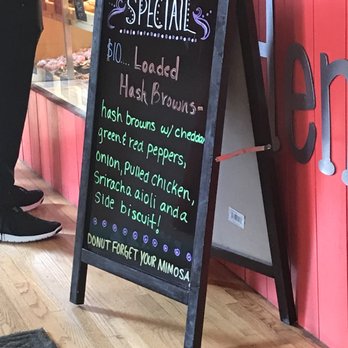 SPECIAL
$10.... Loaded
Hash Browns-
hash browns w/ cheddar
green & red peppers,
onion, pulled chicken,
Sriracha aioli and a
side biscuit!
DONUT FORGET YOUR MIMOSA
en